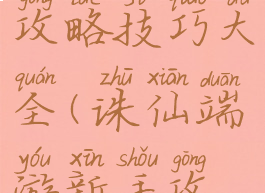 gōng lüè jì qiǎo dà
攻略技巧大
quán zhū xiān duān
全(诛仙端
yóu xīn shǒu gōng
游新手攻